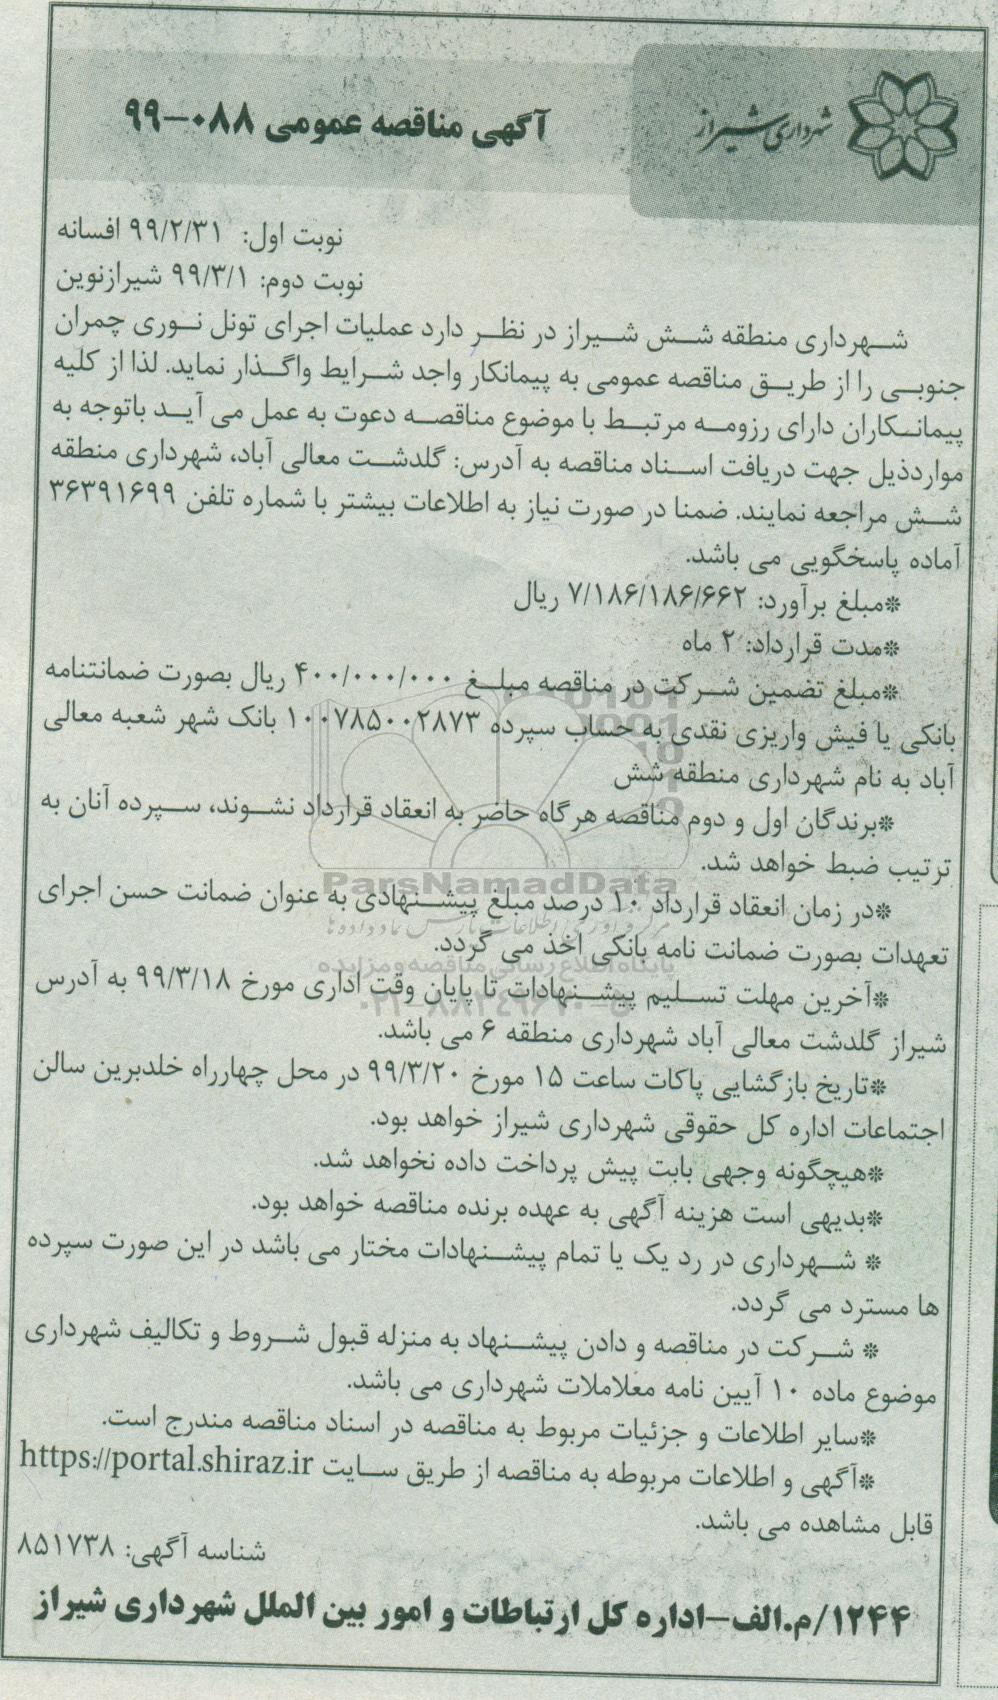 شهرداری شیراز
آگهی مناقصه عمومی ۰۸۸-۹۹
نوبت اول: ۹۹/۲/۳۱ افسانه
نوبت دوم: ۹۹/۳/۱ شیرازنوین
شهرداری منطقه شش شیراز در نظر دارد عملیات اجرای تونل نوری چمران
جنوبی را از طریق مناقصه عمومی به پیمانکار واجد شرایط واگذار نماید. لذا از کلیه
پیمانکاران دارای رزومه مرتبط با موضوع مناقصه دعوت به عمل می آید باتوجه به
مواردذیل جهت دریافت اسناد مناقصه به آدرس: گلدشت معالی آباد، شهرداری منطقه
شش مراجعه نمایند. ضمنا در صورت نیاز به اطلاعات بیشتر با شماره تلفن ۳۶۳۹۱۶۹۹
آماده پاسخگویی می باشد.
*مبلغ برآورد: ۷/۱۸۶/۱۸۶/۶۶۲ ریال
*مدت قرارداد: ۲ ماه
*مبلغ تضمین شرکت در مناقصه مبلغ ۴۰۰/۰۰۰/۰۰۰ ریال بصورت ضمانتنامه
بانکی یا فیش واریزی نقدی به حساب سپرده ۱۰۰۷۸۵۰۰۲۸۷۳ بانک شهر شعبه معالی
آباد به نام شهرداری منطقه شش
*برندگان اول و دوم مناقصه هرگاه حاضر به انعقاد قرارداد نشوند، سپرده آنان به
ترتیب ضبط خواهد شد.
ParsNamadData
*در زمان انعقاد قرارداد ۱۰ درصد مبلغ پیشنهادی به عنوان ضمانت حسن اجرای
تعهدات بصورت ضمانت نامه بانکی اخذ می گردد.
پایگاه اطلاع رسانی مناقصه و مزایده
*آخرین مهلت تسلیم پیشنهادات تا پایان وقت اداری مورخ ۹۹/۳/۱۸ به آدرس
شیراز گلدشت معالی آباد شهرداری منطقه ۶ می باشد.
*تاریخ بازگشایی پاکات ساعت ۱۵ مورخ ۹۹/۳/۲۰ در محل چهارراه خلدبرین سالن
اجتماعات اداره کل حقوقی شهرداری شیراز خواهد بود.
*هیچگونه وجهی بابت پیش پرداخت داده نخواهد شد.
*بدیهی است هزینه آگهی به عهده برنده مناقصه خواهد بود.
* شهرداری در رد یک یا تمام پیشنهادات مختار می باشد در این صورت سپرده
ها مسترد می گردد.
* شرکت در مناقصه و دادن پیشنهاد به منزله قبول شروط و تکالیف شهرداری
موضوع ماده ۱۰ آیین نامه معلاملات شهرداری می باشد.
*سایر اطلاعات و جزئیات مربوط به مناقصه در اسناد مناقصه مندرج است.
*آگهی و اطلاعات مربوطه به مناقصه از طریق سایت https://portal.shiraz.ir
قابل مشاهده می باشد.
شناسه آگهی: ۸۵۱۷۳۸
۱۲۴۴/م.الف-اداره کل ارتباطات و امور بین الملل شهرداری شیراز